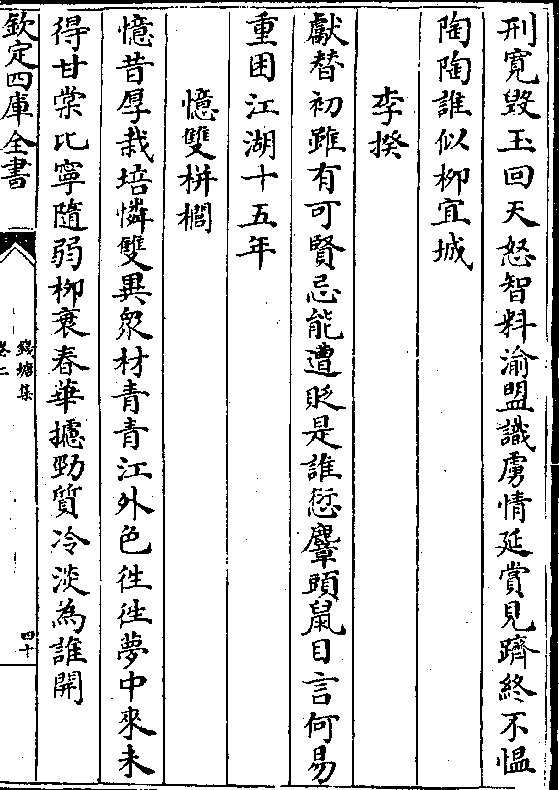 刑寛毀玉回天怒智料渝盟識虜情延賞見躋終不愠
陶陶誰似柳宜城
李揆
獻替初雖有可賢忌能遭貶是誰愆麞頭鼠目言何易
重困江湖十五年
憶雙栟櫚
憶昔厚栽培憐雙異衆材青青江外色徃徃夢中來未
得甘棠比寧隨弱柳衰春華攄勁質冷淡為誰開
欽定四庫全書
錢塘集
卷二
四十